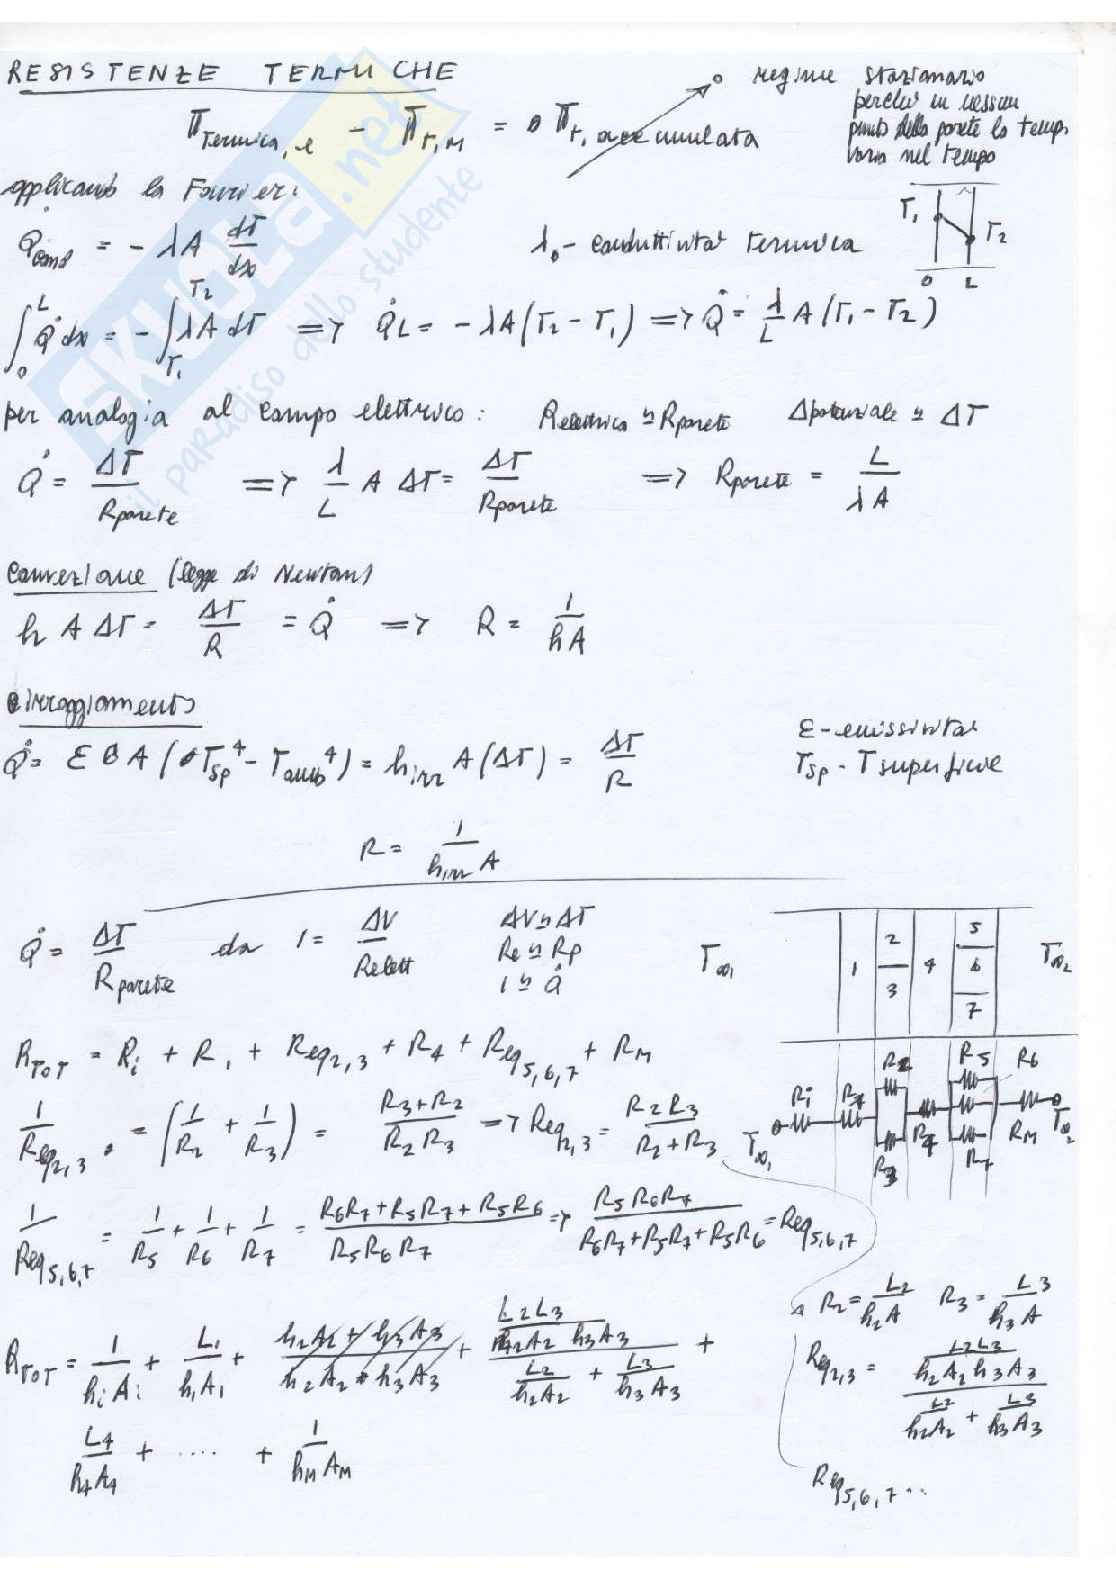 RESISTENZE TERMICHE
π_Termica,e - π_T,M = π_T, accumulata
0 regime stazionario
perché in nessun
punto della parete la temp.
varia nel tempo
applicando la Fourier:
Q̇cond = - λA dT/dx
λ - conduttività termica
T₁ T₂
0 L
∫₀^L Q̇ dx = - ∫_T₁^T₂ λA dT => Q̇L = - λA(T₂ - T₁) => Q̇ = λ/L A (T₁ - T₂)
per analogia al campo elettrico: Relettrica ≃ Rparete Δpotenziale ≃ ΔT
Q̇ = ΔT/Rparete => λ/L A ΔT = ΔT/Rparete => Rparete = L/λA
Convezione (legge di Newton)
h A ΔT = ΔT/R = Q̇ => R = 1/hA
irraggiamento
Q̇ = εσA (Tsp⁴ - Tamb⁴) = hirr A(ΔT) = ΔT/R
ε - emissività
Tsp - T superficie
R = 1/(hirr A)
Q̇ = ΔT/Rparete da I = ΔV/Relett
ΔV ≃ ΔT
Re ≃ Rp
I ≃ Q̇
T∞₁ 1 2 3 4 5 6 7 T∞₂
RTOT = Ri + R₁ + Req₂,₃ + R₄ + Req₅,₆,₇ + RM
T∞₁ Ri R₁ R₂ R₃ R₄ R₅ R₆ R₇ RM T∞₂
1/Req₂,₃ = (1/R₂ + 1/R₃) = (R₃+R₂)/(R₂R₃) => Req₂,₃ = R₂R₃/(R₂+R₃)
1/Req₅,₆,₇ = 1/R₅ + 1/R₆ + 1/R₇ = (R₆R₇+R₅R₇+R₅R₆)/(R₅R₆R₇) => R₅R₆R₇/(R₆R₇+R₅R₇+R₅R₆) = Req₅,₆,₇
R₂ = L₂/h₂A R₃ = L₃/h₃A
Req₂,₃ = (L₂L₃/(h₂A₂h₃A₃))/(L₂/h₂A₂ + L₃/h₃A₃)
RTOT = 1/hiAi + L₁/h₁A₁ + (h₂A₂ + h₃A₃)/(h₂A₂ + h₃A₃) + (L₂L₃/(h₂A₂ h₃A₃))/(L₂/h₂A₂ + L₃/h₃A₃) +
L₄/h₄A₄ + .... + 1/hMAM
Req₅,₆,₇ ..
SKUOLA.net
il paradiso dello studente